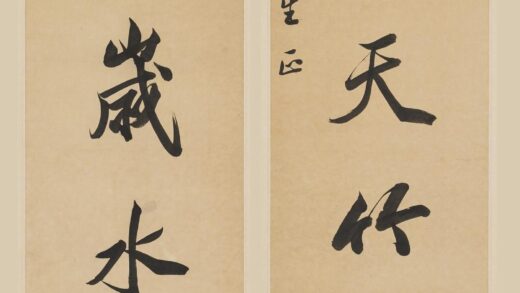 生正
天竹
歲水